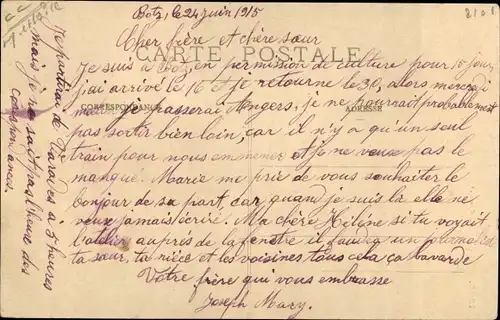 Botz, le 24 juin 1915
Cher frère et chère sœur
CARTE POSTALE
Je suis à Botz, en permission de culture pour 15 jours
j'ai arrivé le 16 et je retourne le 30, alors mercredi
CORRESPONDANCE
ADRESSE
matin je passerai Angers, je ne pourrait probablement
pas sortir bien loin, car il n'y a qu'un seul
train pour nous emmener et je ne veux pas le
manqué. Marie me prie de vous souhaiter le
bonjour de sa part, car quand je suis là elle ne
veux jamais écrire. Ma chère Hélène si tu voyait
l'atelier auprès de la fenêtre il faudrai un
ta sœur, ta nièce et les voisines tous cela ça bavarde
Votre
frère qui vous embrasse
Joseph Mary.
Je partirai de Varades à 5 heures
mais je ne sait pas l'heure des